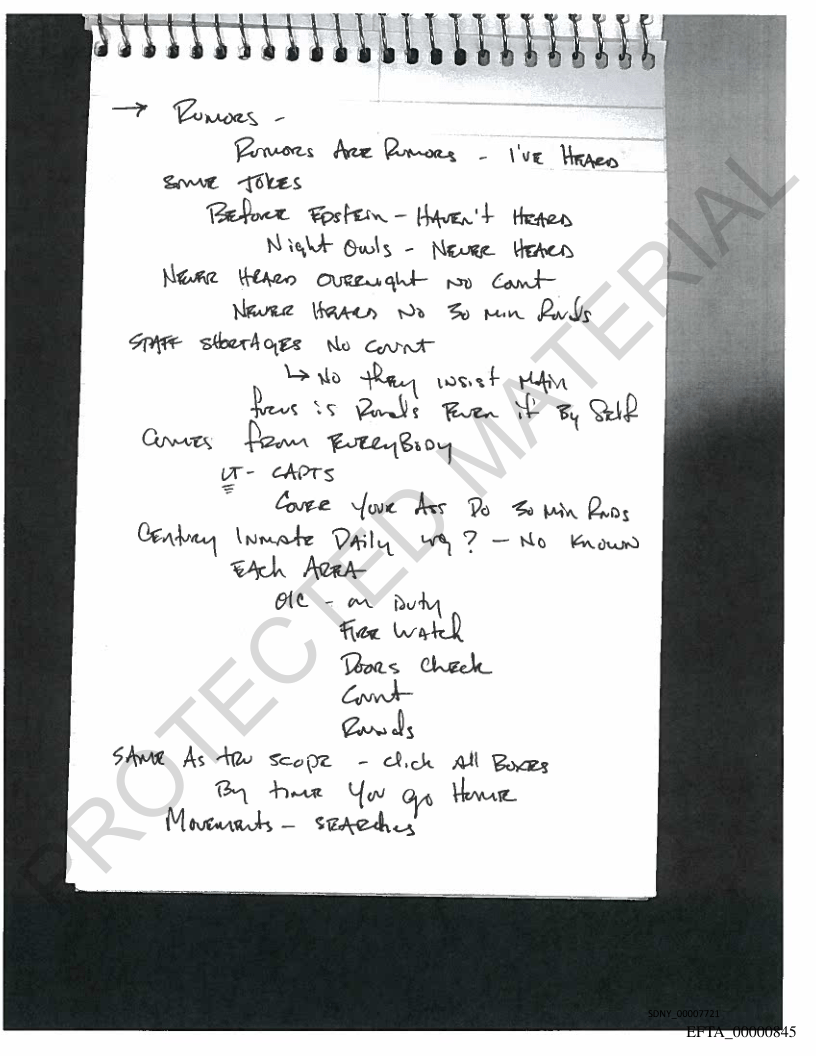 → Rumors -
Rumors Are Rumors - I've Heard
some Jokes
Before Epstein - Haven't Heard
Night Owls - Never Heard
Never Heard overnight no Count
Never Heard No 30 min Rounds
Staff Shortages No Count
↳ No they insist main
focus is Rounds Even if By Self
Comes from EveryBody
LT - CAPTS
Cover your Ass Do 30 Min Rnds
Century Inmate Daily ? - No Known
Each Area
OIC - on Duty
Fire Watch
Doors Check
Count
Rounds
Same As tru scope - click All Boxes
By time You go Home
Movements - Searches
PROTECTED MATERIAL
SDNY_00007721
EFTA_00000845